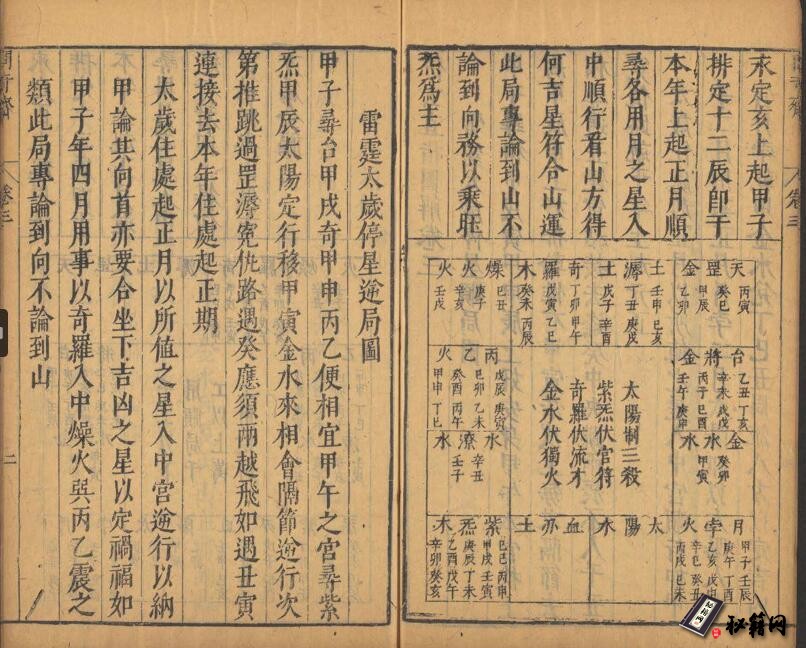 求定亥上起甲子
排定十二辰卽于
本年上起正月順
尋各用月之星入
中順行看山方得
何吉星符合山運
此局專論到山不
論到向務以乘旺
炁爲主
天 丙寅
罡 甲辰
金 乙卯
土 壬申 己亥
溽 丁丑 庚戌
土 戊子 辛酉
奇 丁卯 甲午
羅 戊寅 乙巳
木 癸未 丙辰
燥 己丑
火 庚子 辛亥
火 壬戌
台 乙丑 丁亥
將 辛未 戊戌 丙子 己酉
金 壬午 庚申
丙 戊辰 庚寅
乙 己卯 乙未 癸酉 丙午
火 甲申 丁巳
太陽制三殺
紫炁伏官符
奇羅伏流才
金水伏獨火
金 癸卯
水 甲寅
水
水 辛丑
潦 壬子
水
月 甲子 壬辰 庚午 丁酉
孛 乙亥 戊申 辛巳 癸丑
火 丙戌 己未
太陽水
血刃土
紫 己巳 丙申 甲戌 壬寅
炁 庚辰 丁未 乙酉 戊午
木 辛卯 癸亥
雷霆太歲停星逆局圖
甲子尋台甲戌奇甲申丙乙便相宜甲午之宮尋紫
炁甲辰太陽定行移甲寅金水來相會隔節逆行次
第推跳過罡溽寃仇路遇癸應須兩越飛如遇丑寅
連接去本年住處起正期
太歲住處起正月以所値之星入中宮逆行以納
甲論其向首亦要合坐下吉凶之星以定禍福如
甲子年四月用事以奇羅入中燥火與丙乙震之
類此局專論到向不論到山
卷三
二
卷三
秘籍网